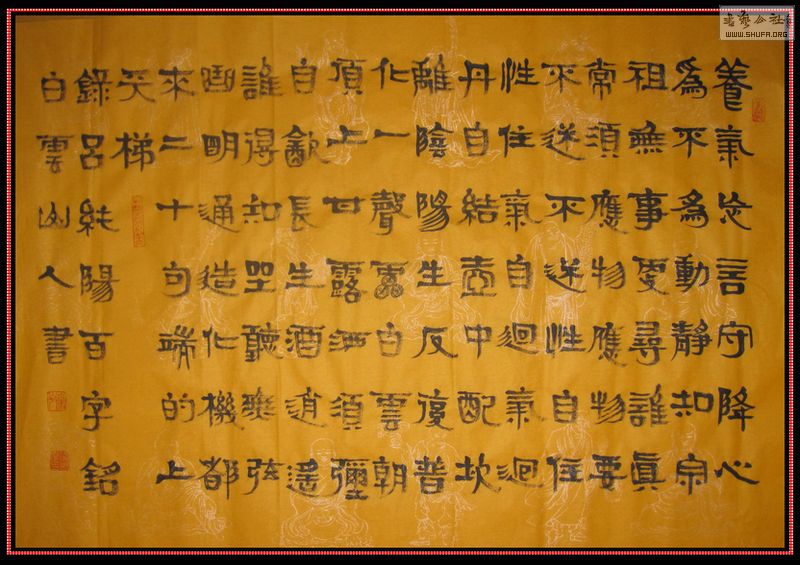 養氣忘言守降心
為不為動靜知宗
祖無事更尋誰真
常須應物應物要
不迷不迷性自住
性住氣自迴氣迴
丹自結壺中配坎
離陰陽生反復普
化一聲雷白雲朝
頂上甘露洒須彌
自飲長生酒逍遙
誰得知坐聽無弦
曲明通造化機都
來二十句端的上
天梯
錄呂純陽百字銘
白雲山人書
書藝公社
WWW.SHUFA.ORG